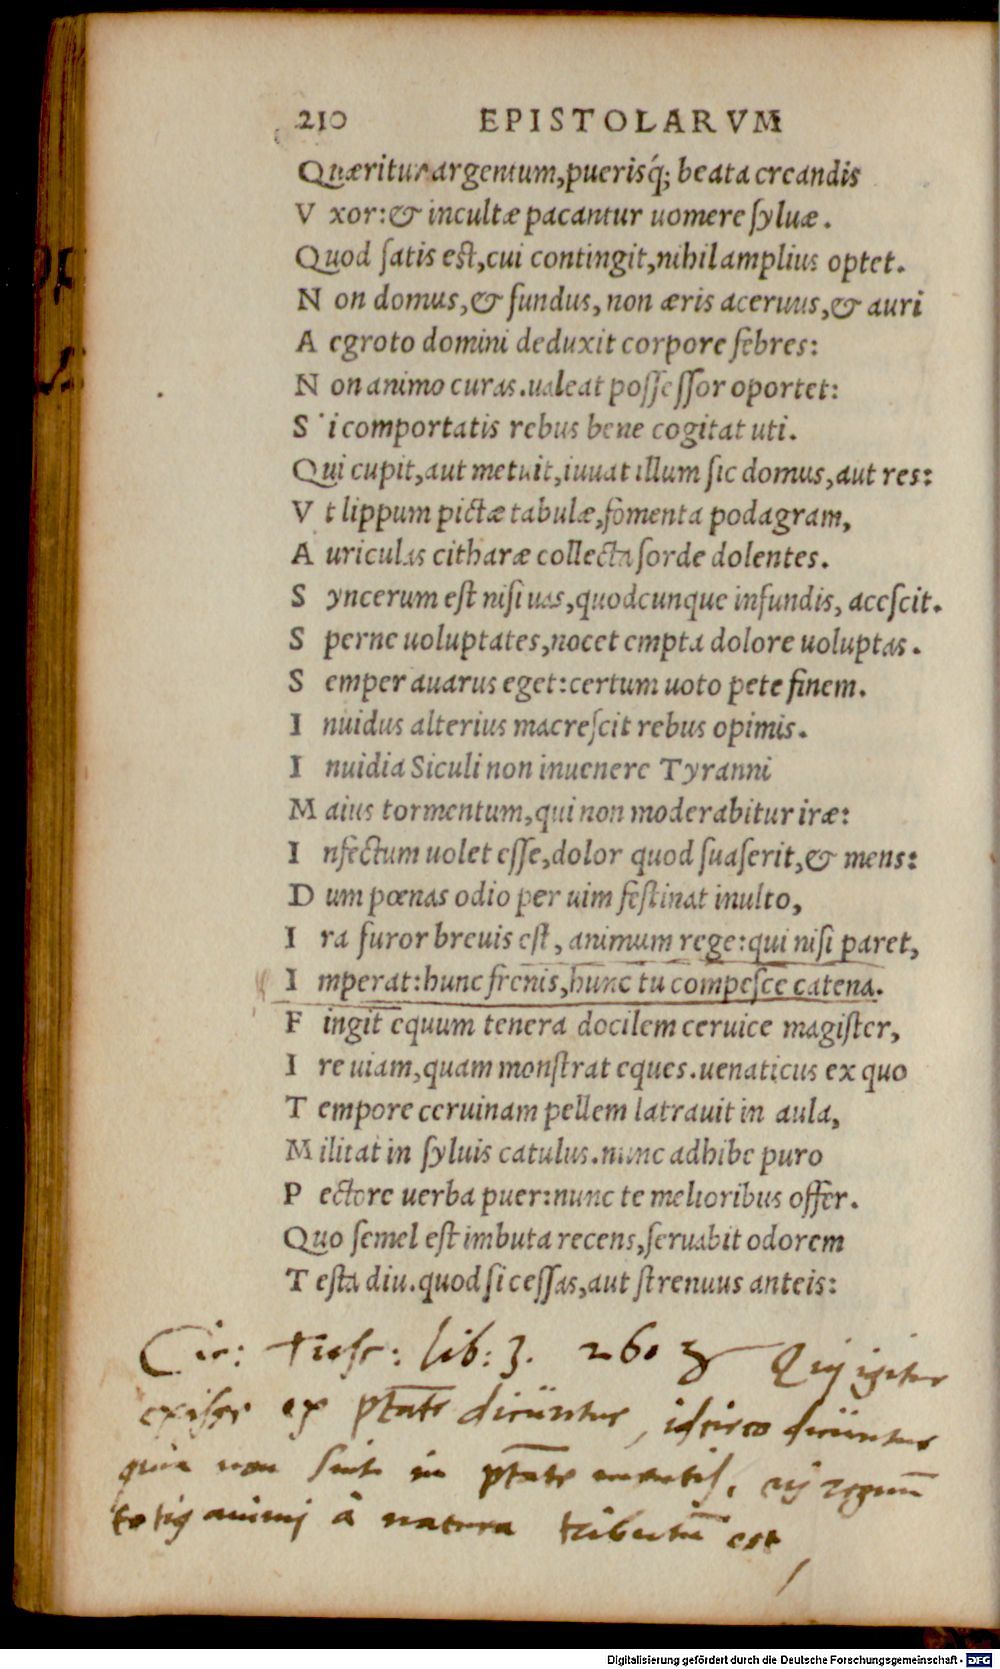 210 EPISTOLARVM
Quæritur argentum,puerisq́; beata creandis
V xor:& incultæ pacantur uomere ſyluæ.
Quod ſatis eſt,cui contingit,nihil amplius optet.
N on domus,& fundus, non æris aceruus,& auri
A egroto domini deduxit corpore febres:
N on animo curas.ualeat poſſeſſor oportet:
S i comportatis rebus bene cogitat uti.
Qui cupit,aut metuit,iuuat illum ſic domus,aut res:
V t lippum pictæ tabulæ,fomenta podagram,
A uriculas citharæ collecta ſorde dolentes.
S yncerum eſt niſi uas,quodcunque infundis, aceſcit.
S perne uoluptates,nocet empta dolore uoluptas.
S emper auarus eget:certum uoto pete finem.
I nuidus alterius macreſcit rebus opimis.
I nuidia Siculi non inuenere Tyranni
M aius tormentum,qui non moderabitur iræ:
I nfectum uolet eſſe,dolor quod ſuaſerit,& mens:
D um pœnas odio per uim feſtinat inulto,
I ra furor breuis eſt, animum rege:qui niſi paret,
I mperat:hunc frenis,hunc tu compeſce catena.
F ingit equum tenera docilem ceruice magiſter,
I re uiam,quam monſtrat eques.uenaticus ex quo
T empore ceruinam pellem latrauit in aula,
M ilitat in ſyluis catulus.nunc adhibe puro
P ectore uerba puer:nunc te melioribus offer.
Quo ſemel eſt imbuta recens,ſeruabit odorem
T eſta diu.quod ſi ceſſas,aut ſtrenuus anteis:
Cic: Tusc: lib: 3. 260 Qui igitur
exisse ex ptāte dicūntur, idcirco dicūntur
quia non sint in ptāte mentis, cui regnū
totius animi à natura tributū est
Digitalisierung gefördert durch die Deutsche Forschungsgemeinschaft - DFG